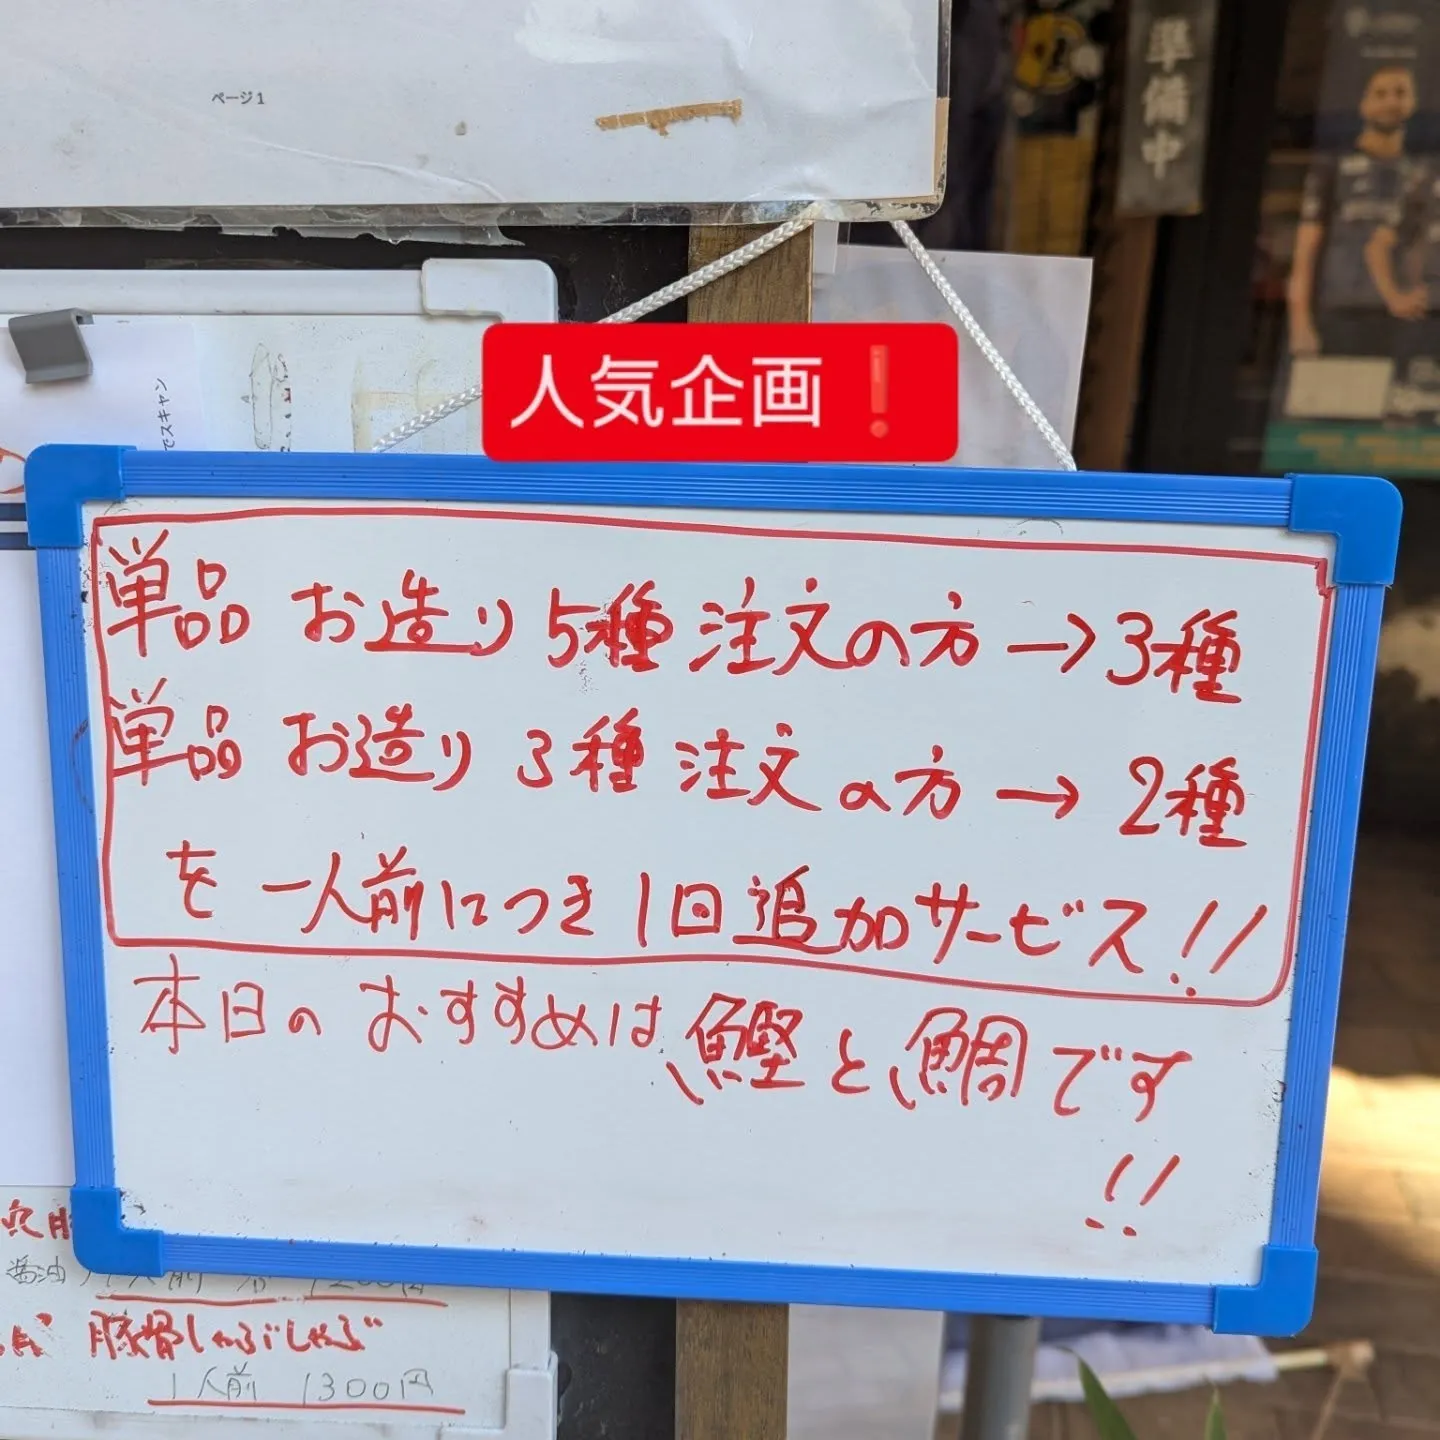 ページ1
準備中
でスキャン
人気企画❗
単品 お造り 5種 注文の方→3種
単品 お造り 3種 注文の方→2種
を 一人前につき 1回追加サービス!!
本日の おすすめは 鰹と鯛です
!!
醤油
豚骨しゃぶしゃぶ
1人前 1300円